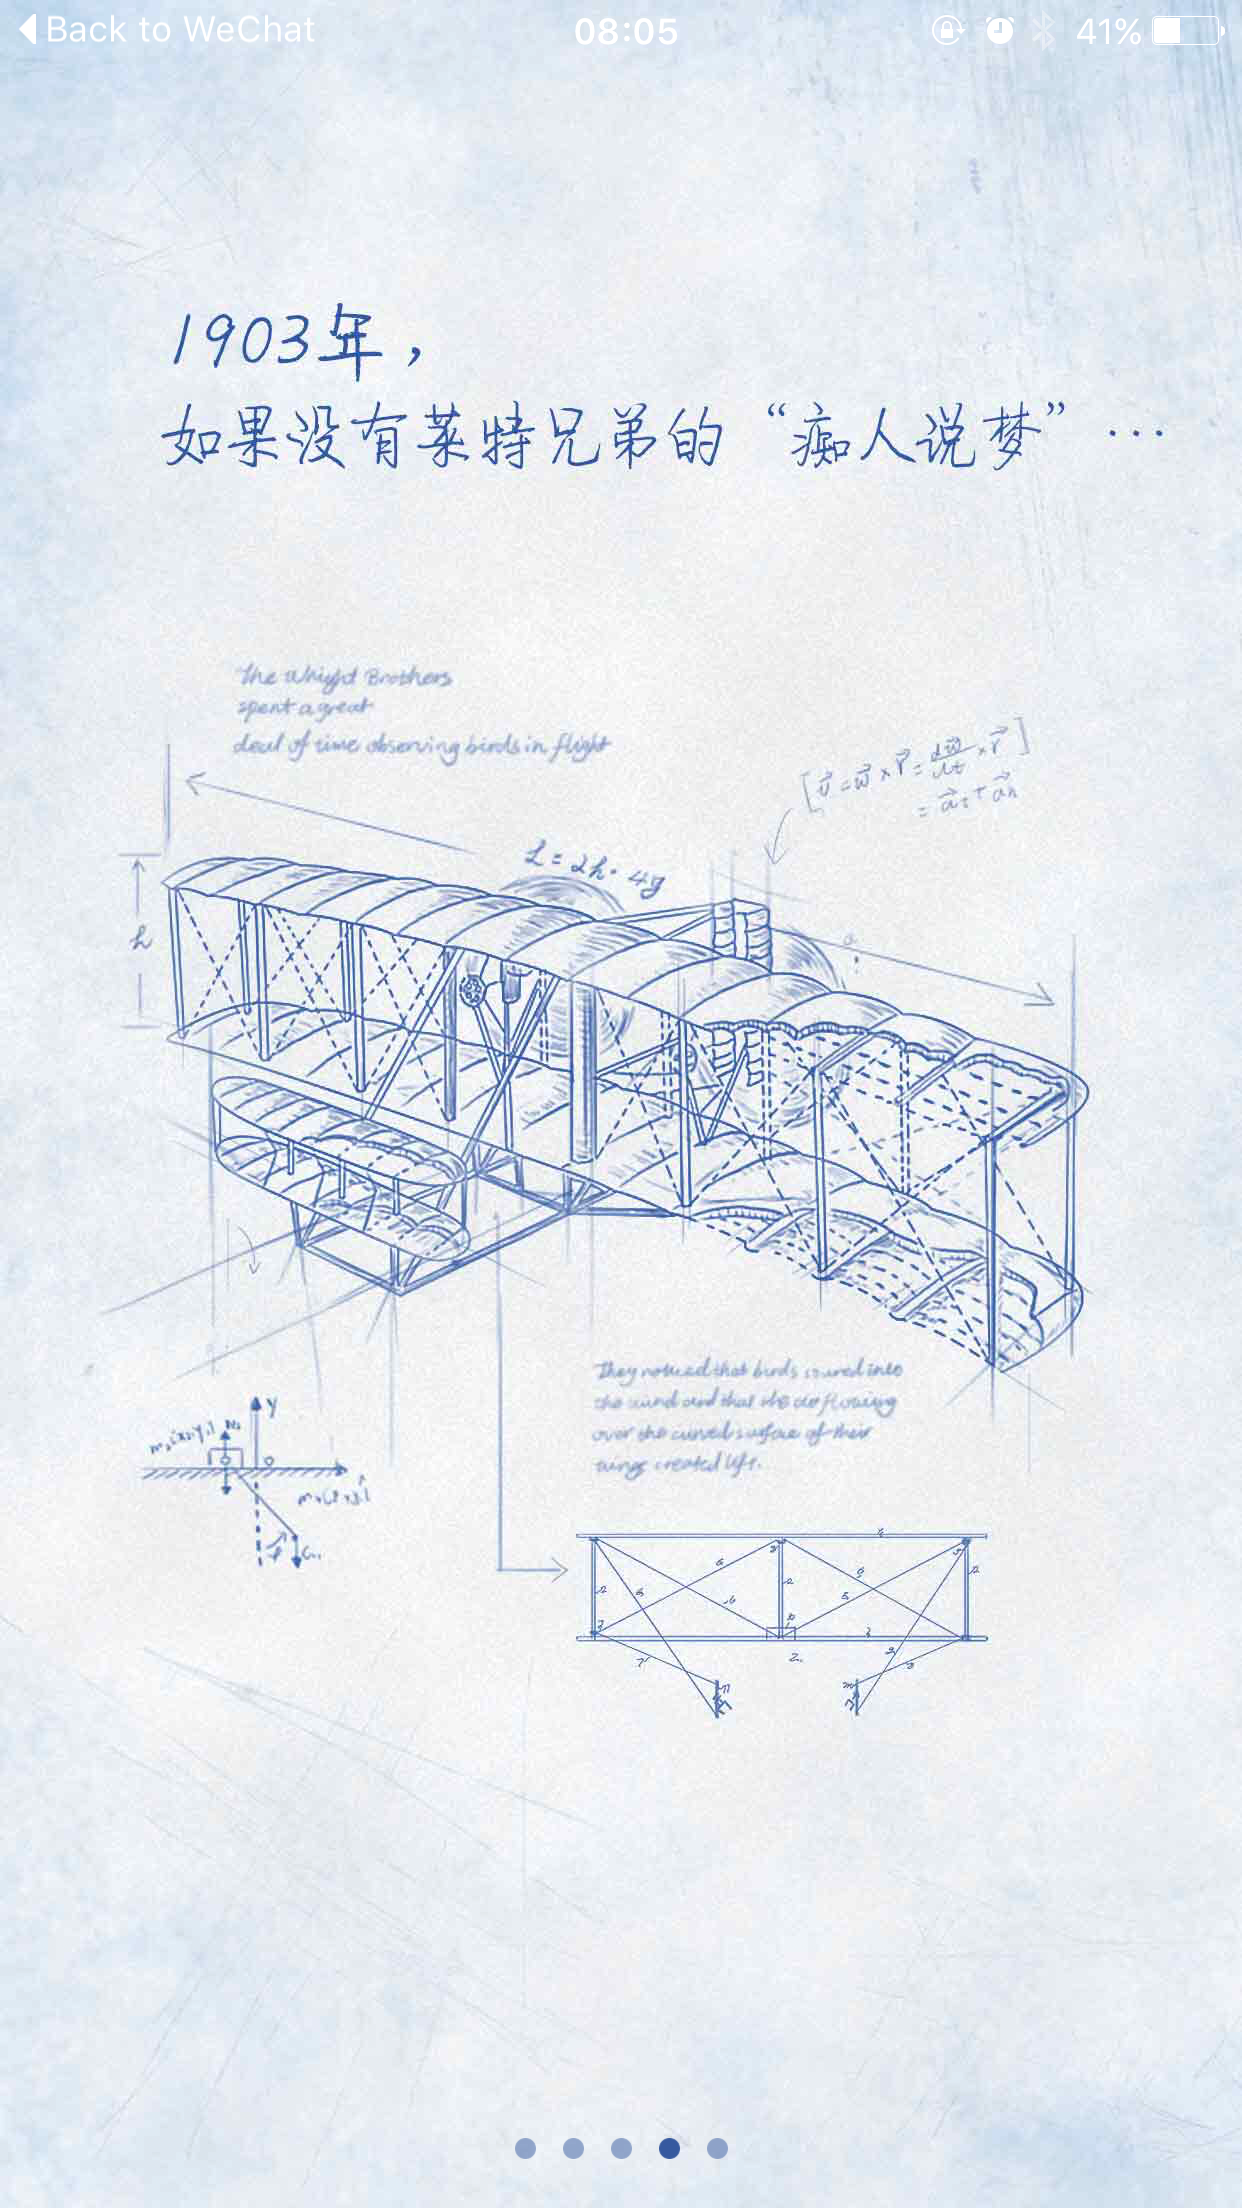 Back to WeChat
08:05
41%
1903年，
如果没有莱特兄弟的“痴人说梦”…
The Whight Brothers
spent a great
deal of time observing birds in flight
L = 2h · 4g
h
They noticed that birds soared into
the wind and that the air flowing
over the curved surface of their
wings created lift.
y